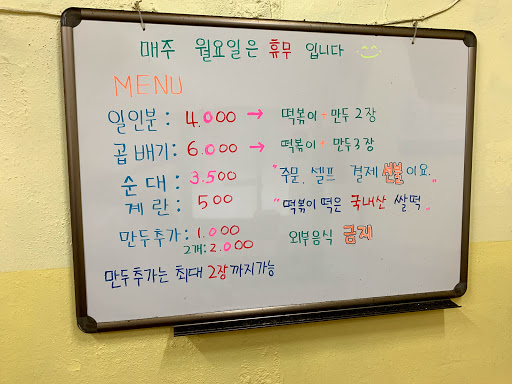 매주 월요일은 휴무 입니다
MENU
일인분: 4.000 → 떡볶이 + 만두 2장
곱배기: 6.000 → 떡볶이 + 만두3장
순대: 3.500 "주문, 셀프 결제 선불이요."
계란: 500 "떡볶이 떡은 국내산 쌀떡"
만두추가: 1.000 외부음식 금지
2개: 2.000
만두추가는 최대 2장까지가능